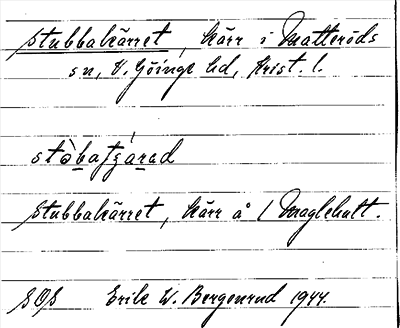 Stubbakärret, kärr i Matteröds
sn, V. Göinge hd, Krist. l.
stə̀baʃʒárad
Stubbakärret, kärr å 1 Maglehult.
SOS Erik W. Bergenrud 1944.